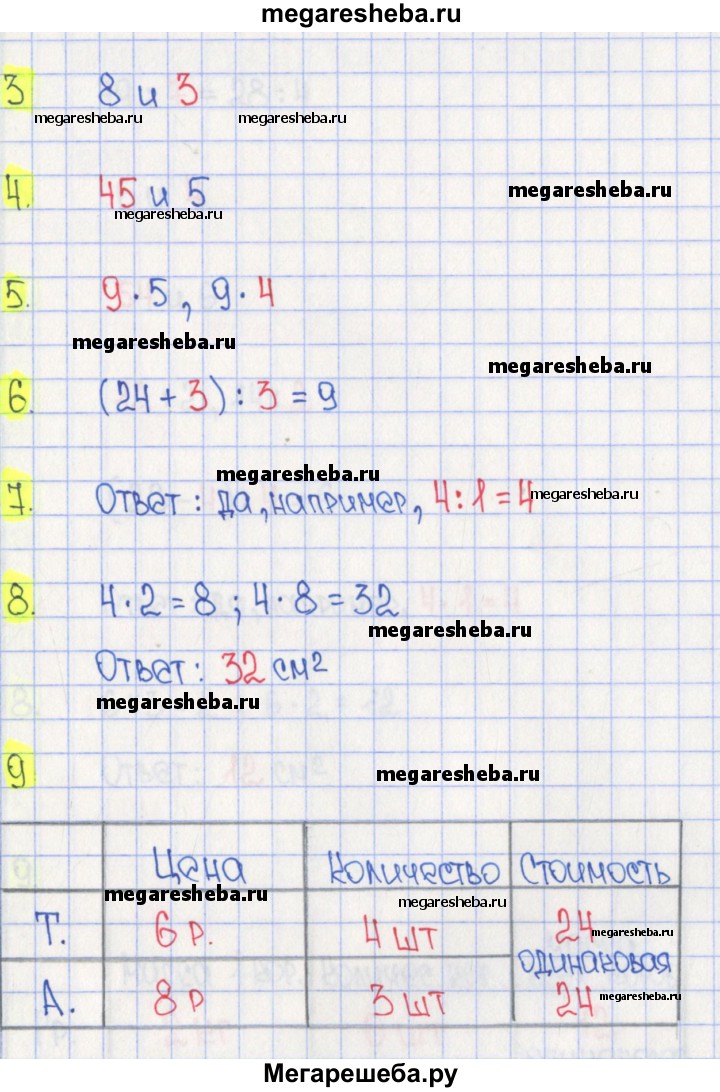 megaresheba.ru
3 8 и 3
megaresheba.ru megaresheba.ru
4. 45 и 5 megaresheba.ru
megaresheba.ru
5. 9 · 5 , 9 · 4
megaresheba.ru
megaresheba.ru
6. (24 + 3) : 3 = 9
megaresheba.ru
7. Ответ : да, например, 4 : 1 = 4 megaresheba.ru
8. 4 · 2 = 8 ; 4 · 8 = 32
megaresheba.ru
Ответ : 32 см²
megaresheba.ru
9 megaresheba.ru
Цена Количество Стоимость
megaresheba.ru megaresheba.ru
Т. 6 р. 4 шт 24 megaresheba.ru
одинаковая
А. 8 р 3 шт 24 megaresheba.ru
Мегарешеба.ру